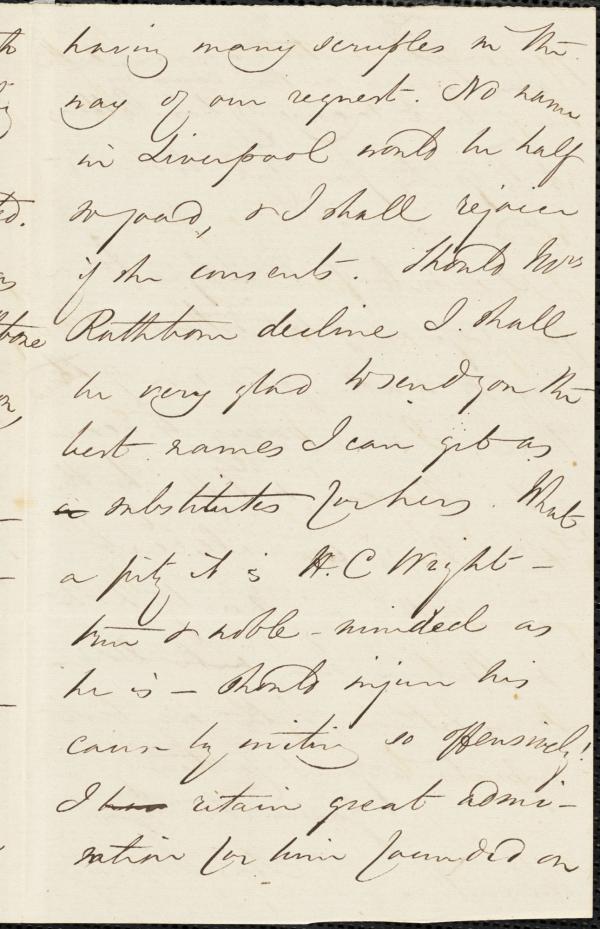 having many scruples in the
way of our request. No name
in Liverpool would be half
so good, & I shall rejoice
if she consents. Should Mrs
Rathbone decline I shall
be very glad to send you the
best names I can get as
as substitutes for hers. What
a pity it is H. C Wright –
true & noble-minded as
he is – should injure his
cause by writing so offensively!
I have retain great admi-
ration for him founded on